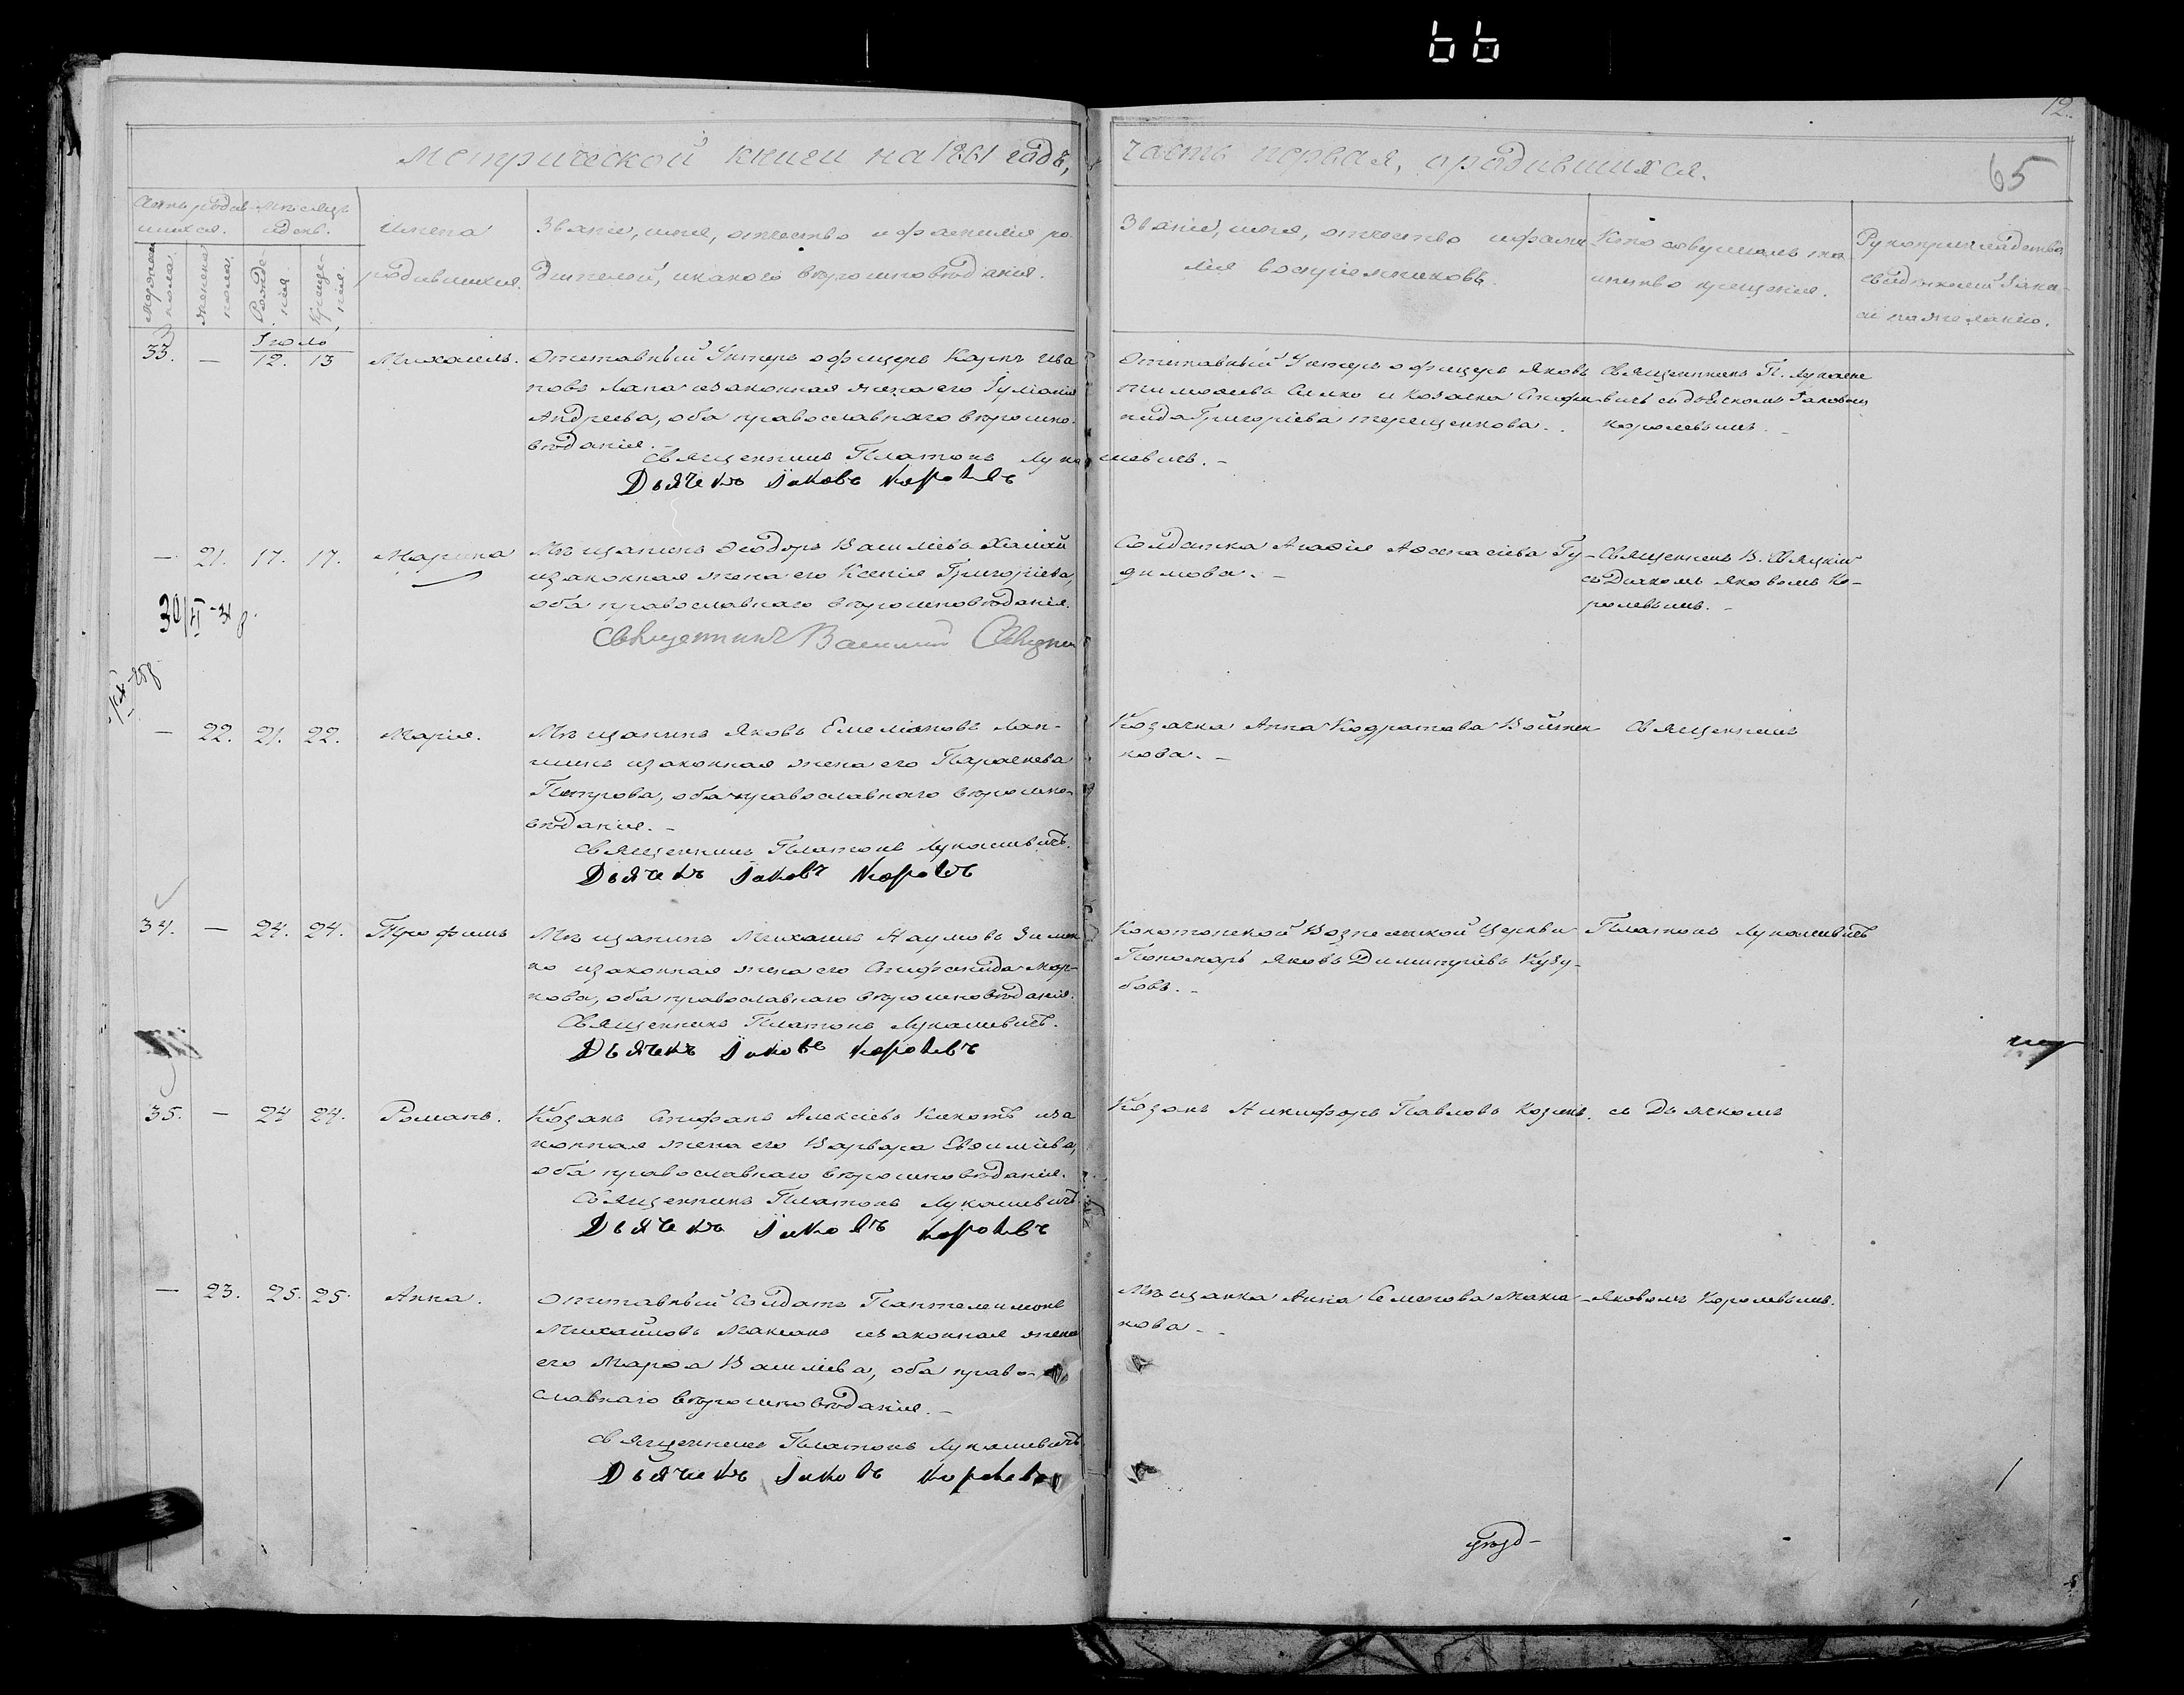 66
12.
65
Метрической книги на 1861 годъ,
часть первая, о родившихся.
Счетъ родив-
шихся.
Мѣсяцъ
и день.
Мужеска
пола.
Женска
пола.
Рожде-
нія
Креще-
нія.
Имена
родившихся.
Званіе, имя, отчество и фамилія ро-
дителей, и какого вѣроисповѣданія.
Званіе, имя, отчество и фами
лія воспріемниковъ.
Кто совершалъ та
инство крещенія.
Рукоприкладство
свидѣтелей записи
по желанію.
Іюль
33. — 12. 13 Михаилъ.
Отставный Унтеръ офицеръ Карпъ Ива
новъ Лапа и законная жена его Іуліанія
Андреева, оба православнаго вѣроиспо-
вѣданія. —
Священникъ Платонъ Лукашевичъ. —
Дьячекъ Іаковъ Королевъ
Отставный Унтеръ офицеръ Яковъ
Тимофеевъ и Козачка Стефа
нида Григоріева Терещенкова. .
Священникъ П. Лукаше
вичъ съ дьячкомъ Іаковомъ
Королевымъ. —
— 21. 17. 17. Марина
Мѣщанинъ Ѳеодоръ Василіевъ
и законная жена его Ксенія Григоріева,
оба православнаго вѣроисповѣданія.
Священникъ Василий
Солдатка Агафія Аѳанасіева Гу-
димова. —
Священникъ В.
съ Дьячкомъ Яковомъ Ко-
ролевымъ. —
— 22. 21. 22. Марія.
Мѣщанинъ Яковъ Емеліановъ Лап-
шинъ и законная жена его Параскева
Петрова, оба православнаго вѣроиспо-
вѣданія. —
Священникъ Платонъ Лукашевичъ.
Дьячекъ Іаковъ Королевъ
Козачка Анна Кодратова Войтен
кова. —
Священникъ
34. — 24. 24. Трофимъ
Мѣщанинъ Михаилъ Наумовъ
и законная жена его Стефанида Мар-
кова, оба православнаго вѣроисповѣданія.
Священникъ Платонъ Лукашевичъ.
Дьячекъ Іаковъ Королевъ
Конотопской Вознесенской Церкви
Пономарь Яковъ Димитріевъ Кузу-
бовъ. —
Платонъ Лукашевичъ
35. — 24 24. Романъ.
Козакъ Стефанъ Алексіевъ и за
конная жена его Варвара Евѳиміева,
оба православнаго вѣроисповѣданія.
Священникъ Платонъ Лукашевичъ
Дьячекъ Іаковъ Королевъ
Козакъ Никифоръ Павловъ
съ Дьячкомъ
— 23. 25. 25. Анна.
Отставный Солдатъ Пантелеимонъ
Михайловъ Макіакъ и законная жена
его Марѳа Василіева, оба право-
славнаго вѣроисповѣданія. —
Священникъ Платонъ Лукашевичъ
Дьячекъ Іаковъ Королевъ
Мѣщанка Анна Семенова
кова. —
Яковомъ Королевымъ.